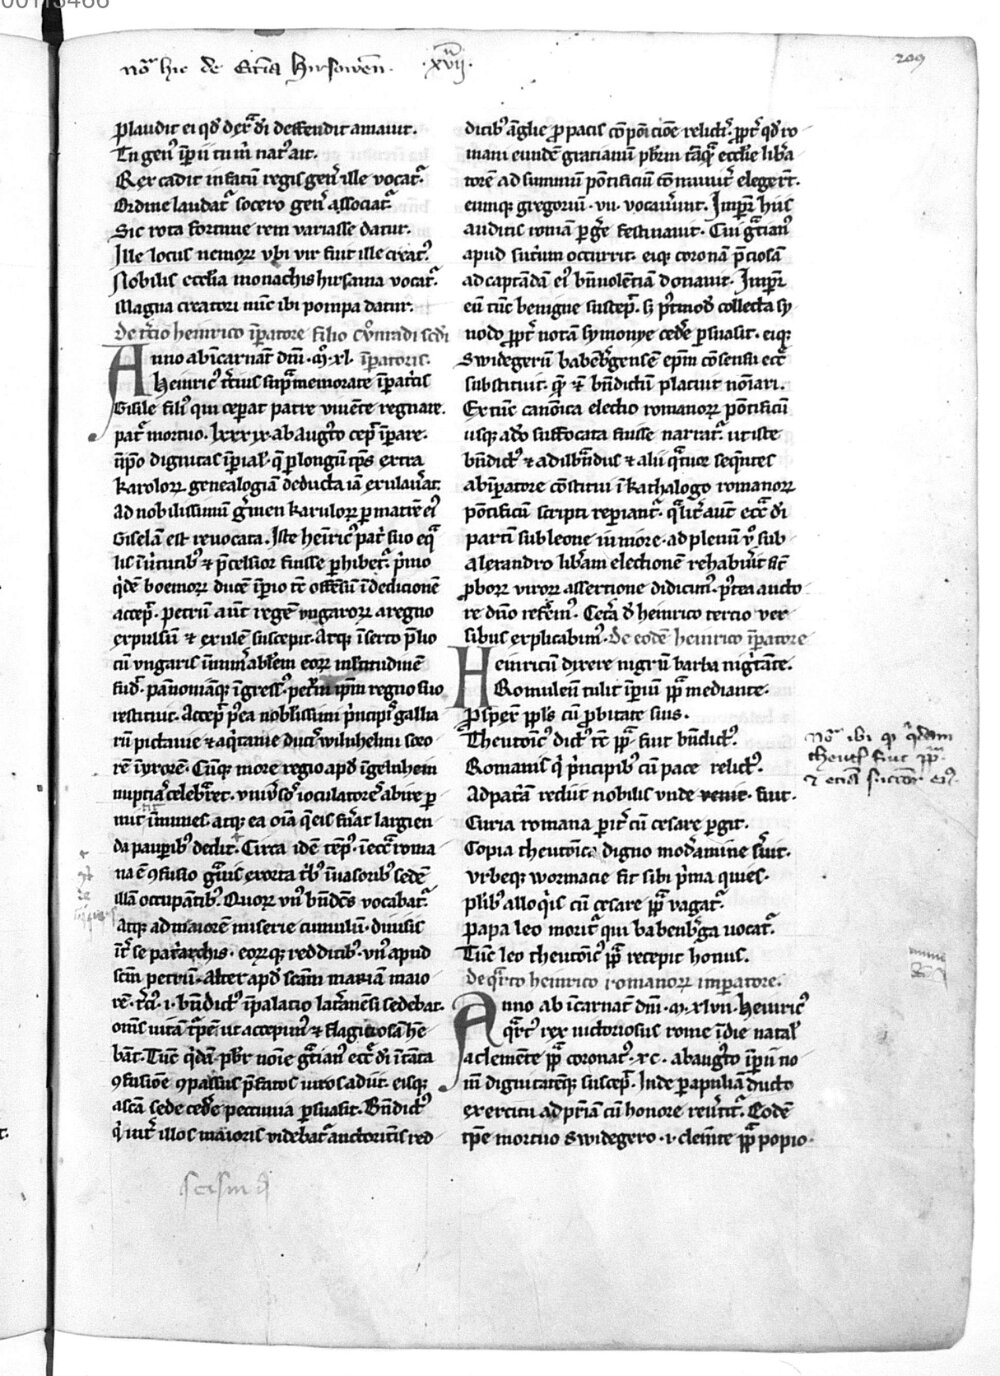 nõ hic de Ecc̃ia Hirsowẽn. .xvij.
209
plaudit ei qd̛ dext̾ dĩ deffendit amauit.
Tu gen̾ ip̃ii tu m̃ nat̾ ait.
Rex cadit in fatũ regis gen̾ ille vocat̾.
Ordine laudat̾ socero gen̾ associat̾.
Sic rota fortune rem variasse datur.
Ille locus nemorũ vbi vir fuit ille creat̾.
Nobilis ecclia monachis hirsauia vocat̾.
Magna creatori nũc ibi pompa datur.
de t̾cio heinrico ip̃atore filio cõnradi scd̛i
Anno ab incarnat̃ dñi .m.xl. ip̃atoris.
Heinric̾ t̾cius sup̾ memorate ip̃at̾cis
Gisile fili̾ qui ceperat patre viuẽte regnare.
pat̾ mortuo. lxxxix. ab augt̾o cep̃ ip̃are.
dignitas ip̃ial̾. q̃ p longũ tp̃s extra
karolorꝝ genealogiã deducta iã exulau̾at.
Ad nobilissimũ g̾men karulorꝝ p matrẽ ei̾
Giselam est reuocata. Iste heinric̾ pat̾ suo eq̾
lis ĩ u̾tutib̾ & p̃celsior fuisse phibet̾. p̾mo
q̾dẽ boemorꝝ ducẽ ip̃io offẽsũ ĩ dedicionẽ
accep̃. petrũ aũt regẽ vngarorꝝ a regno
expulsũ & exulẽ suscepit. Atq̃ ĩserto p̃lio
cũ vngaris multitudinẽ
fud̾. pannoniãq̃ ĩgress̾. petrũ ip̃m regno suo
restituit. Accep̃ p̾ea nobilissimi p̾ncipis gallia
rũ pictauie & aq̾tanie duc̾ wilnhelmi soro
rẽ ĩ vxorẽ. Cũq̃ more regio apd̾ ĩgelnheim
nuptias celeb̾ret. vniu̾sos ioculatores abire p
mit ĩmunes. atq̃ ea oĩa q̃ eis fu̾at largien
da paupib̾ dedit. Circa idẽ tẽp̾. ĩ ecc̾a roma
na ẽ ꝯfusio g̾uis exorta t̾b̾ ĩuasorib̾ sedẽ
illã occupantib̾. Quorꝝ vn̾ bñdict̾s vocabat̾.
Atq̃ ad maiorẽ miserie cumulũ. diuisis
ĩt̾ se pat̾archis. eorꝝq̃ redditib̾. vn̾ apud
scm̃ petrũ. Alter apd̾ scãm mariam maio
rẽ. t̾ci̾ .i. bñdict̾ ĩ palatio lat̾anẽsi sedebat.
oẽs uitã t̾pem ut accepim̾ & flagiciosã he
bãt. Tũc q̾dã pb̾r noĩe g̾tian̾ ecc̾ dĩ ĩ tãta
ꝯfusiõe ꝯpassus p̃fatos uiros adiit. eisq̃
ascã sede cede̾ pecunia p̾suasit. Bñdict̾
q̾ int̾ illos maioris videbat̾ auctoritatis red
ditib̾ ãglie p̾ pacis cõposicõe relict̾. ppt̾ qd̾ ro
mani eundẽ gratianũ pb̾rm tãq̾ ecclesie lib̾a
torẽ ad summũ põtificiũ cõmuniter elegert̾.
eumq̃ gregoriũ .vii. vocau̾unt. Imp̾r hiis
auditis romã p̾ge̾ festinauit. Cui g̾tian̾
apud sut̾um occurrit. eiq̃ coronã p̃ciosã
ad captandã ei̾ bñiuolẽtiam donauit. Imp̾r
eũ tũc benigne suscep̃. s; p̾tmod̾ collecta sy
nodo ppt̾ notam symonye cede̾ p̾suasit. eiq̃
Swidegerũ babeb̾gensẽ ep̃m cõsensu ecc̾
substituit. q̃ & bñdictũ placuit noĩari.
Ex tũc canõica electio romanorꝝ põtificũ
usq̃ adõ suffocata fuisse narrat̾. ut iste
bñdict̾ & adilb̾ndus & alii q̾tuor seq̃ntes
ab ip̃atore cõstitui ĩ kathalogo romanorꝝ
põtificum scripti repiant̾. q̾lit̾ aũt ecc̾ dĩ
partĩ sub leone in more. ad plenũ v̾ sub
Alexandro lib̾am electionẽ rehabu̾it sic̃
pborꝝ virorꝝ assertione didicim̾. p̾tea aucto
re dño refe̾m̾. Cet̾a d̾ heinrico tercio ver
sibus explicabim̾. de eodẽ heinrico ip̃atore
Heinricũ dixere nigrũ barba nig̾ante.
Romuleũ tulit ip̃iũ pp̃ mediante.
Psper̾ ppls̾ cũ pbitate suis.
Theutoic̾ dict̾ tc̃ pp̃ fuit bñdict̾.
Romanis q̾ p̾ncipib̾ cũ pace relict̾.
Ad pat̾am rediit nobilis vnde venit. fuit.
Curia romana pit̾ cũ cesare p̾git.
Copia theutoic̾ digno mod̾amine s̾uit.
Vrbeq̃ wormacie fit sibi p̾ma quies.
plib̾ alloq̾is cũ cesare pp̃ vagat̾.
papa leo morit̾ qui babenb̾ga vocat̾.
Tũc leo theutoic̾ pp̃ recepit honus.
de q̾rto heinrico romanorꝝ imperatore.
Anno ab ĩcarnat̃ dñi .m.xlvii. Heinric̾
q̾rt̾ rex uictoriosus rome ĩ die natal̾
a clemẽte pp̃ coronat̾. xc. ab augt̾o ip̃ii no
m̃ dignitatẽq̃ suscep̃. Inde p apuliã ducto
exercitu ad p̾riã cũ honore reu̾tit̾. Eodẽ
tp̃e mortuo Swidegero .i. clemẽte pp̃ popio
nõ ibi q̾ q̾dam
theut̾ fuit pp̃
& etiã succeẽdr̾ ei̾.